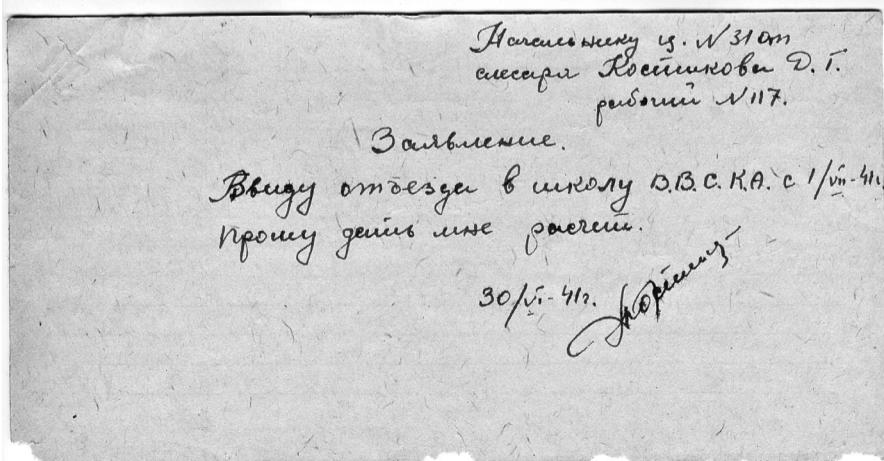 Начальнику ц. N 31 от
слесаря Костикова Д. Г.
рабочий N 117.
Заявление.
Ввиду отъезда в школу В.В.С.К.А. с 1/VII-41г.
прошу дать мне расчет.
30/VI-41г.